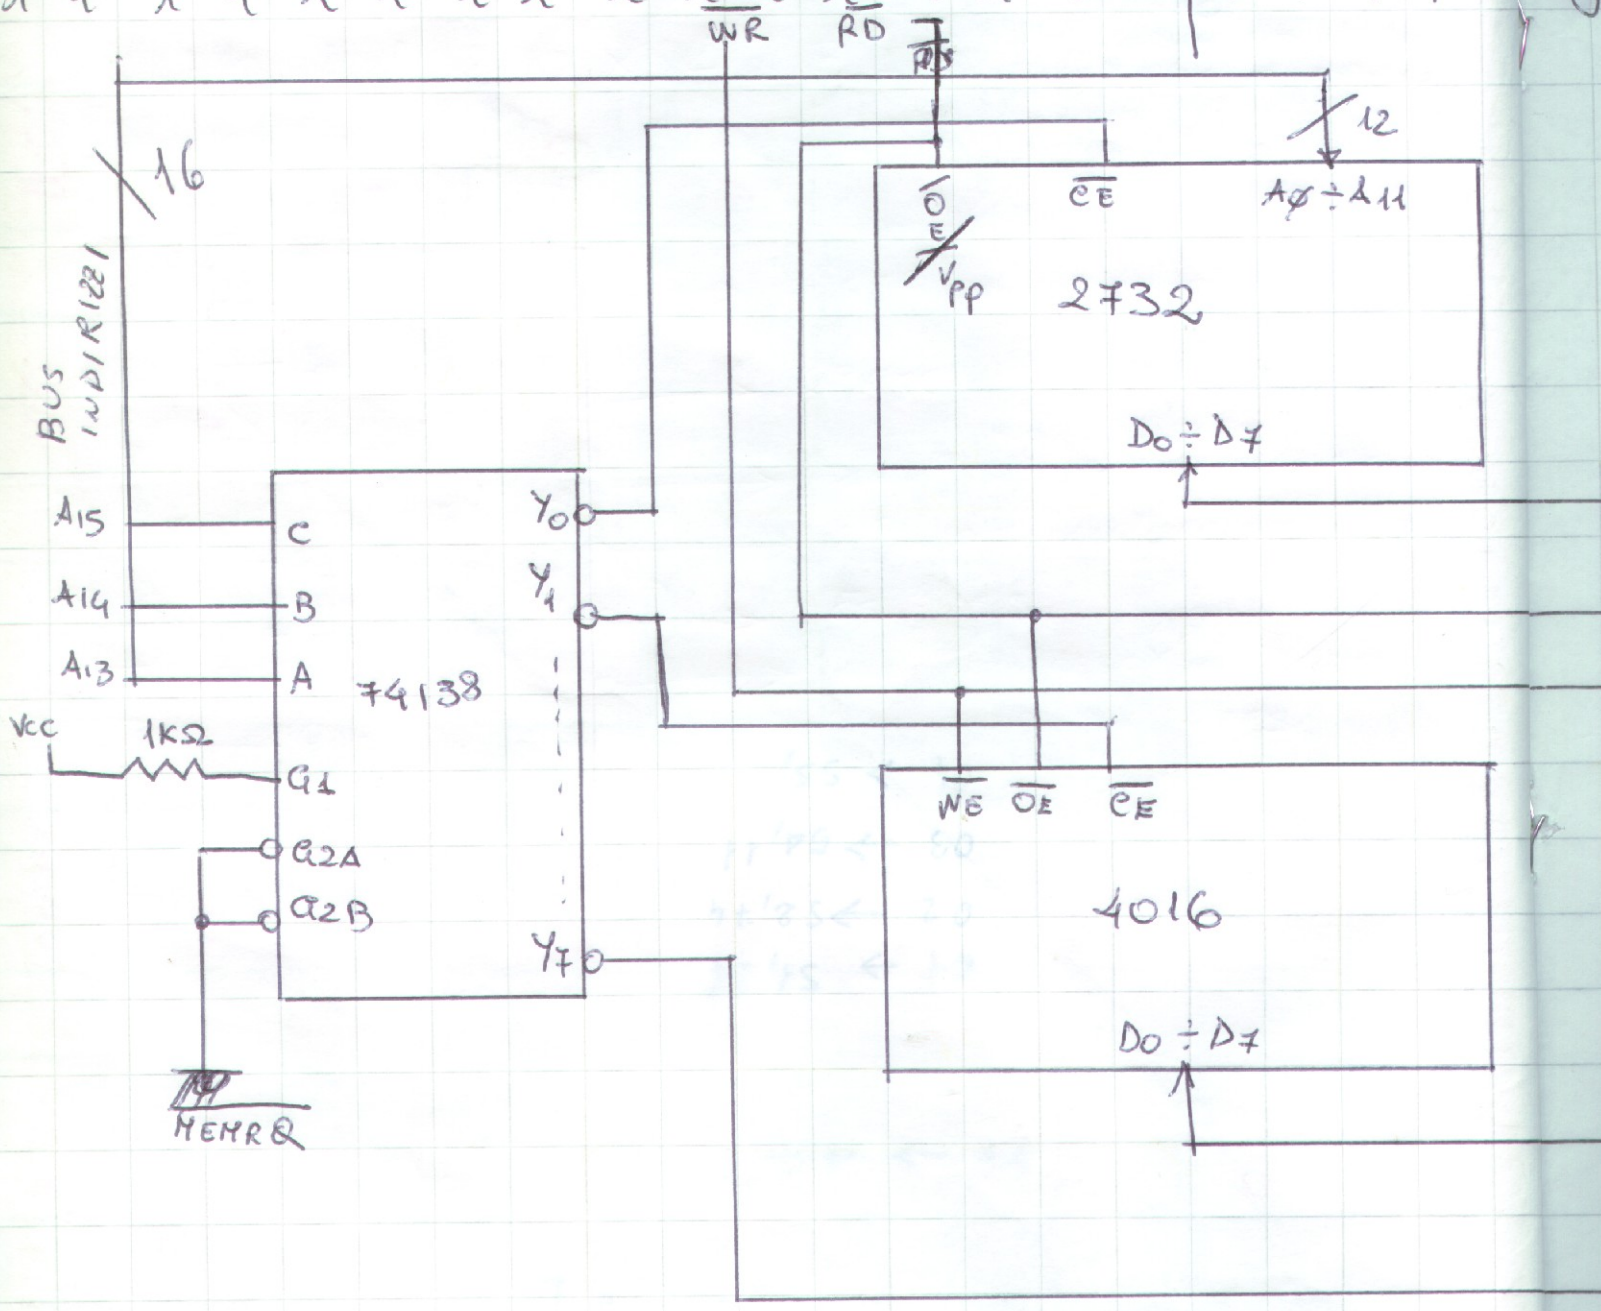 WR RD
16
12
BUS
INDIRIZZI
OE
/
Vpp
CE
Aφ÷A11
2732
D0÷D7
A15
A14
A13
C
B
A
Y0
Y1
74138
VCC
1KΩ
G1
G2A
G2B
Y7
MEMRQ
WE OE CE
4016
D0÷D7